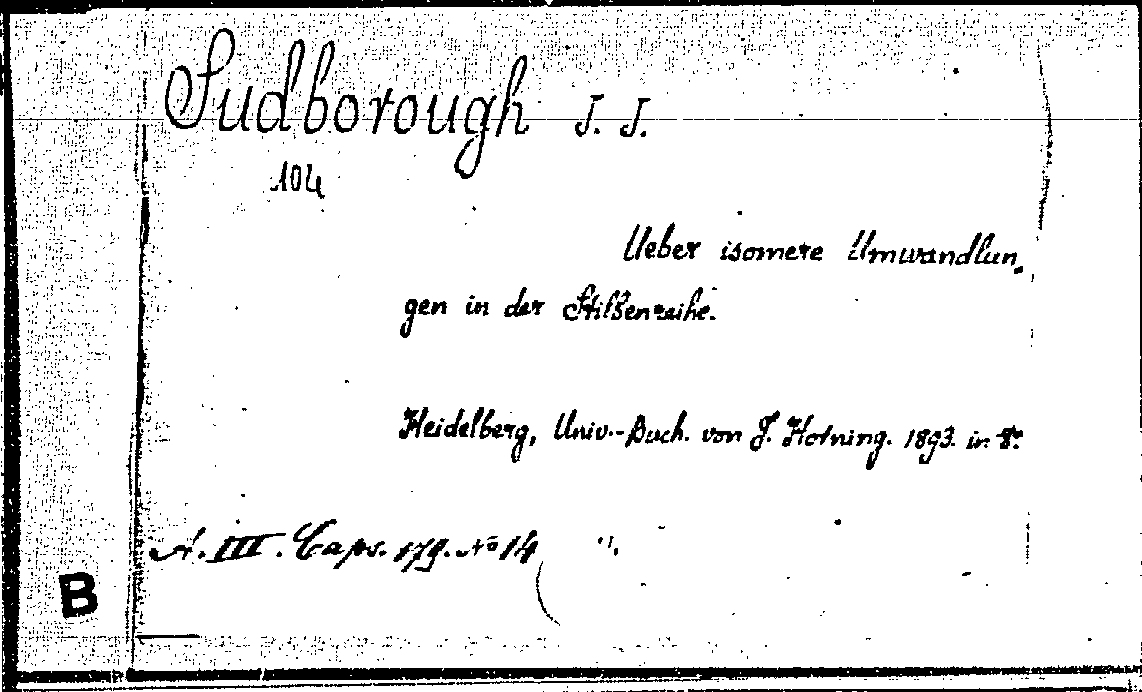 Sudborough J. J.
104
Ueber isomere Umwandlun-
gen in der Stilbenreihe.
Heidelberg, Univ.-Buch. von J. Horning. 1893. in 8°.
A. III. Caps. 179. No 14
B